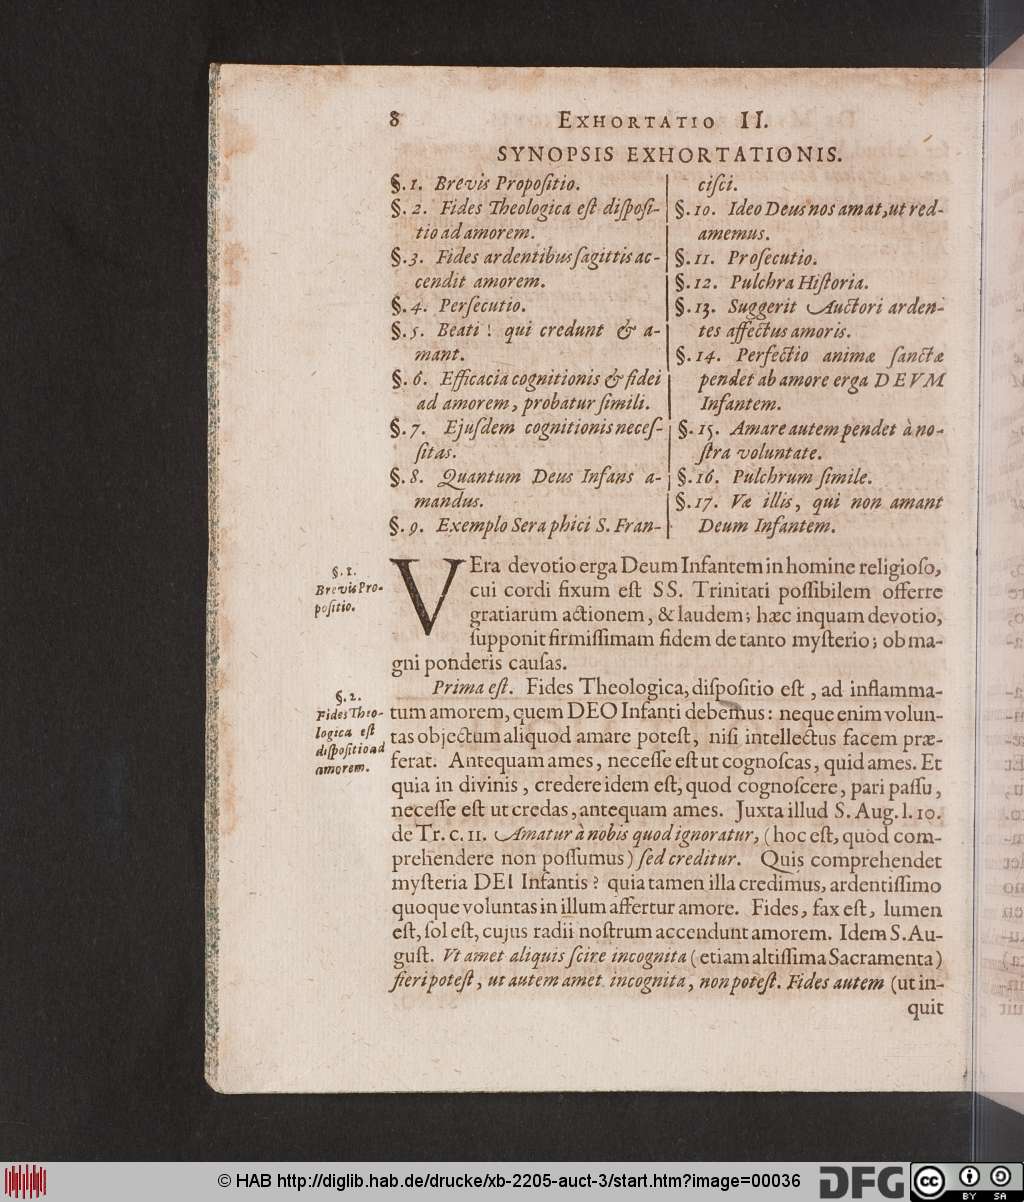 8 EXHORTATIO II.
SYNOPSIS EXHORTATIONIS.
§. 1. Brevis Propoſitio.
§. 2. Fides Theologica eſt diſpoſi-
tio ad amorem.
§. 3. Fides ardentibus ſagittis ac-
cendit amorem.
§. 4. Perſecutio.
§. 5. Beati! qui credunt & a-
mant.
§. 6. Efficacia cognitionis & fidei
ad amorem, probatur ſimili.
§. 7. Ejuſdem cognitionis neceſ-
ſitas.
§. 8. Quantum Deus Infans a-
mandus.
§. 9. Exemplo Seraphici S. Fran-
ciſci.
§. 10. Ideo Deus nos amat, ut red-
amemus.
§. 11. Proſecutio.
§. 12. Pulchra Hiſtoria.
§. 13. Suggerit Auctori arden-
tes affectus amoris.
§. 14. Perfectio animæ ſanctæ
pendet ab amore erga DEVM
Infantem.
§. 15. Amare autem pendet à no-
ſtra voluntate.
§. 16. Pulchrum ſimile.
§. 17. Væ illis, qui non amant
Deum Infantem.
§. 1.
Brevis Pro-
poſitio.
VEra devotio erga Deum Infantem in homine religioſo,
cui cordi fixum eſt SS. Trinitati poſſibilem offerre
gratiarum actionem, & laudem; hæc inquam devotio,
ſupponit firmiſſimam fidem de tanto myſterio; ob ma-
gni ponderis cauſas.
§. 2.
Fides Theo-
logica eſt
diſpoſitio ad
amorem.
Prima eſt. Fides Theologica, diſpoſitio eſt, ad inflamma-
tum amorem, quem DEO Infanti debemus: neque enim volun-
tas objectum aliquod amare poteſt, niſi intellectus facem præ-
ferat. Antequam ames, neceſſe eſt ut cognoſcas, quid ames. Et
quia in divinis, credere idem eſt, quod cognoſcere, pari paſſu,
neceſſe eſt ut credas, antequam ames. Juxta illud S. Aug. l. 10.
de Tr. c. 11. Amatur à nobis quod ignoratur, (hoc eſt, quod com-
prehendere non poſſumus) ſed creditur. Quis comprehendet
myſteria DEI Infantis? quia tamen illa credimus, ardentiſſimo
quoque voluntas in illum affertur amore. Fides, fax eſt, lumen
eſt, ſol eſt, cujus radii noſtrum accendunt amorem. Idem S. Au-
guſt. Vt amet aliquis ſcire incognita (etiam altiſſima Sacramenta)
fieri poteſt, ut autem amet incognita, non poteſt. Fides autem (ut in-
quit
© HAB http://diglib.hab.de/drucke/xb-2205-auct-3/start.htm?image=00036
DFG
cc
BY SA